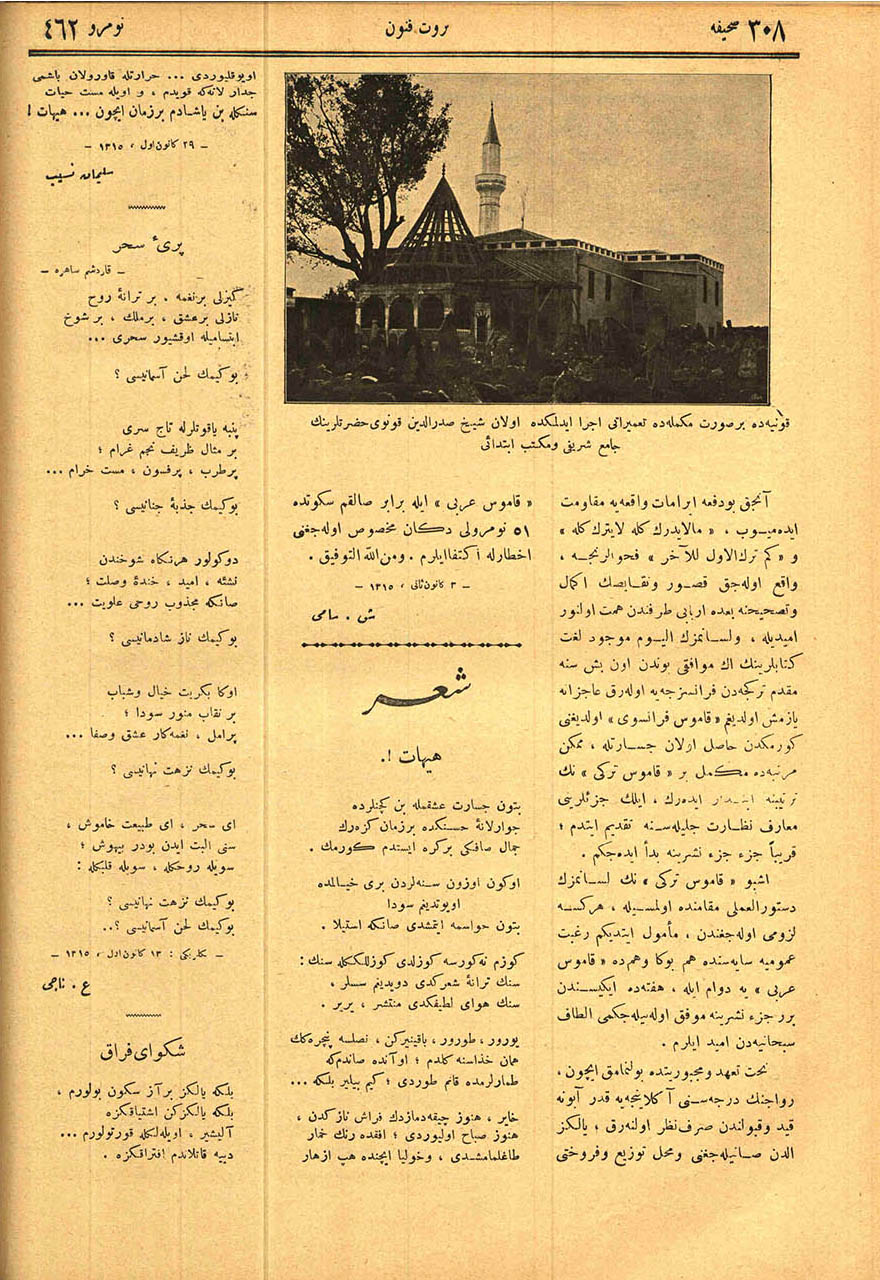 صحیفه ٣٠٨
ثروت فنون
نومرو ٤٦٢
قونیه‌ده بر صورت مکمله‌ده تعمیراتی اجرا ایدلمکده اولان شیخ صدرالدین قونوی حضرتلرینك
جامع شریفی و مکتب ابتدائی
آنجق بودفعه ابرامات واقعه‌یه مقاومت
ایده‌میوب ، « مالایدرك کله لایترك کله »
و « کم ترك الاول للآخر » فحوالرنجه ،
واقع اوله‌جق قصور ونقایصك اکمال
وتصحیحنه بعده اربابی طرفندن همت اولنور
امیدیله ، ولسانمزك الیوم موجود لغت
کتابلرینك اك موافقی بوندن اون بش سنه
مقدم ترکجه‌دن فرانسزجه‌یه اوله‌رق عاجزانه
یازمش اولدیغم « قاموس فرانسوی » اولدیغنی
کورمکدن حاصل اولان جسارتله ، ممکن
مرتبه‌ده مکمل بر « قاموس ترکی » نك
ترتیبنه ابتدار ایده‌رك ، ایلك جزئلرینی
معارف نظارت جلیله‌سنه تقدیم ایتدم ؛
قریباً جزء جزء نشرینه بدأ ایده‌جکم .
اشبو « قاموس ترکی » نك لسانمزك
دستورالعملی مقامنده اولمسیله ، هرکسه
لزومی اوله‌جغندن ، مأمول ایتدیکم رغبت
عمومیه سایه‌سنده هم بوکا وهم‌ده « قاموس
عربی » یه دوام ایله ، هفته‌ده ایکیسندن
برر جزء نشرینه موفق اوله‌بیله‌جکمی الطاف
سبحانیه‌دن امید ایلرم .
تحت تعهد ومجبوریتده بولنمامق ایچون ،
رواجنك درجه‌سنی آکلاینجه‌یه قدر آبونه
قید وقبولندن صرف‌نظر اولنه‌رق ، یالکز
الدن صاتیله‌جغنی ومحل توزیع وفروختی
« قاموس عربی » ایله برابر صالقم سکوتده
٥١ نومرولی دکان مخصوص اوله‌جغنی
اخطارله اکتفا ایلرم . ومن الله التوفیق .
– ٣ کانون ثانی ، ١٣١٥ –
ش . سامی
شعر
هیهات !.
بتون جسارت عشقمله بن کچنلرده
جوار لانۀ حسنکده برزمان کزه‌رك
جمال صافکی برکره ایستدم کورمك .
اوکون اوزون سنه‌لردن بری خیالمده
اویوتدیغم سودا
بتون حواسمه ایتمشدی صانکه استیلا .
کوزم نه‌کورسه کوزلدی کوزللککله سنك :
سنك ترانۀ شعرکدی دویدیغم سسلر ،
سنك هوای لطیفکدی منتشر ، یریر .
یورور ، طورور ، باقینیرکن ، نصلسه پنجره‌کك
همان حذاسنه کلدم ؛ او آنده صاندم‌که
طمارلرمده قانم طوردی ؛ کیم بیلیر بلکه ...
خایر ، هنوز چیقه‌دمازدك فراش نازکدن ،
هنوز صباح اولیوردی ؛ افقده رنك خمار
طاغلمامشدی ، وخولیا ایچنده هپ ازهار
اویوقلیوردی ... حرارتله قاورولان باشمی
جدار لانه‌که قویدم ، و اویله مست حیات
سنکله بن یاشادم برزمان ایچون ... هیهات !
– ٢٩ کانون اول ، ١٣١٥ –
سلیمان نسیب
پریٔ سحر
– قاردشم ساهره –
کیزلی برنغمه ، بر ترانۀ روح
نازلی برعشق ، برملك ، بر شوخ
ابتسامیله اوقشیور سحری ...
بو کیمك لحن آسمانیسی ؟
پنبه یاقوتلرله تاج سری
بر مثال ظریف نجم غرام ؛
پرطرب ، پرفسون ، مست خرام ...
بوکیمك جذبۀ جنانیسی ؟
دوکولور هرنکاه شوخندن
نشئه ، امید ، خندۀ وصلت ؛
صانکه مجذوب روحی علویت ...
بو کیمك ناز شادمانیسی ؟
اوکا بکریت خیال وشباب
بر نقاب منور سودا ؛
پرامل ، نغمه‌کار عشق وصفا ...
بوکیمك نزهت نهانیسی ؟
ای سحر ، ای طبیعت خاموش ،
سنی البت ایدن بودر بیهوش ؛
سویله روحکله ، سویله قلبکله :
بوکیمك نزهت نهانیسی ؟
بوکیمك لحن آسمانیسی ؟..
١٣ کانون اول ، ١٣١٥ –
ع . ناجی
شکوای فراق
بلکه یالکز برآز سکون بولورم ،
بلکه یالکزکن اشتیاقکزه
آلیشیر ، اویله‌لکله قورتولورم ...
دییه قاتلاندم افتراقکزه .